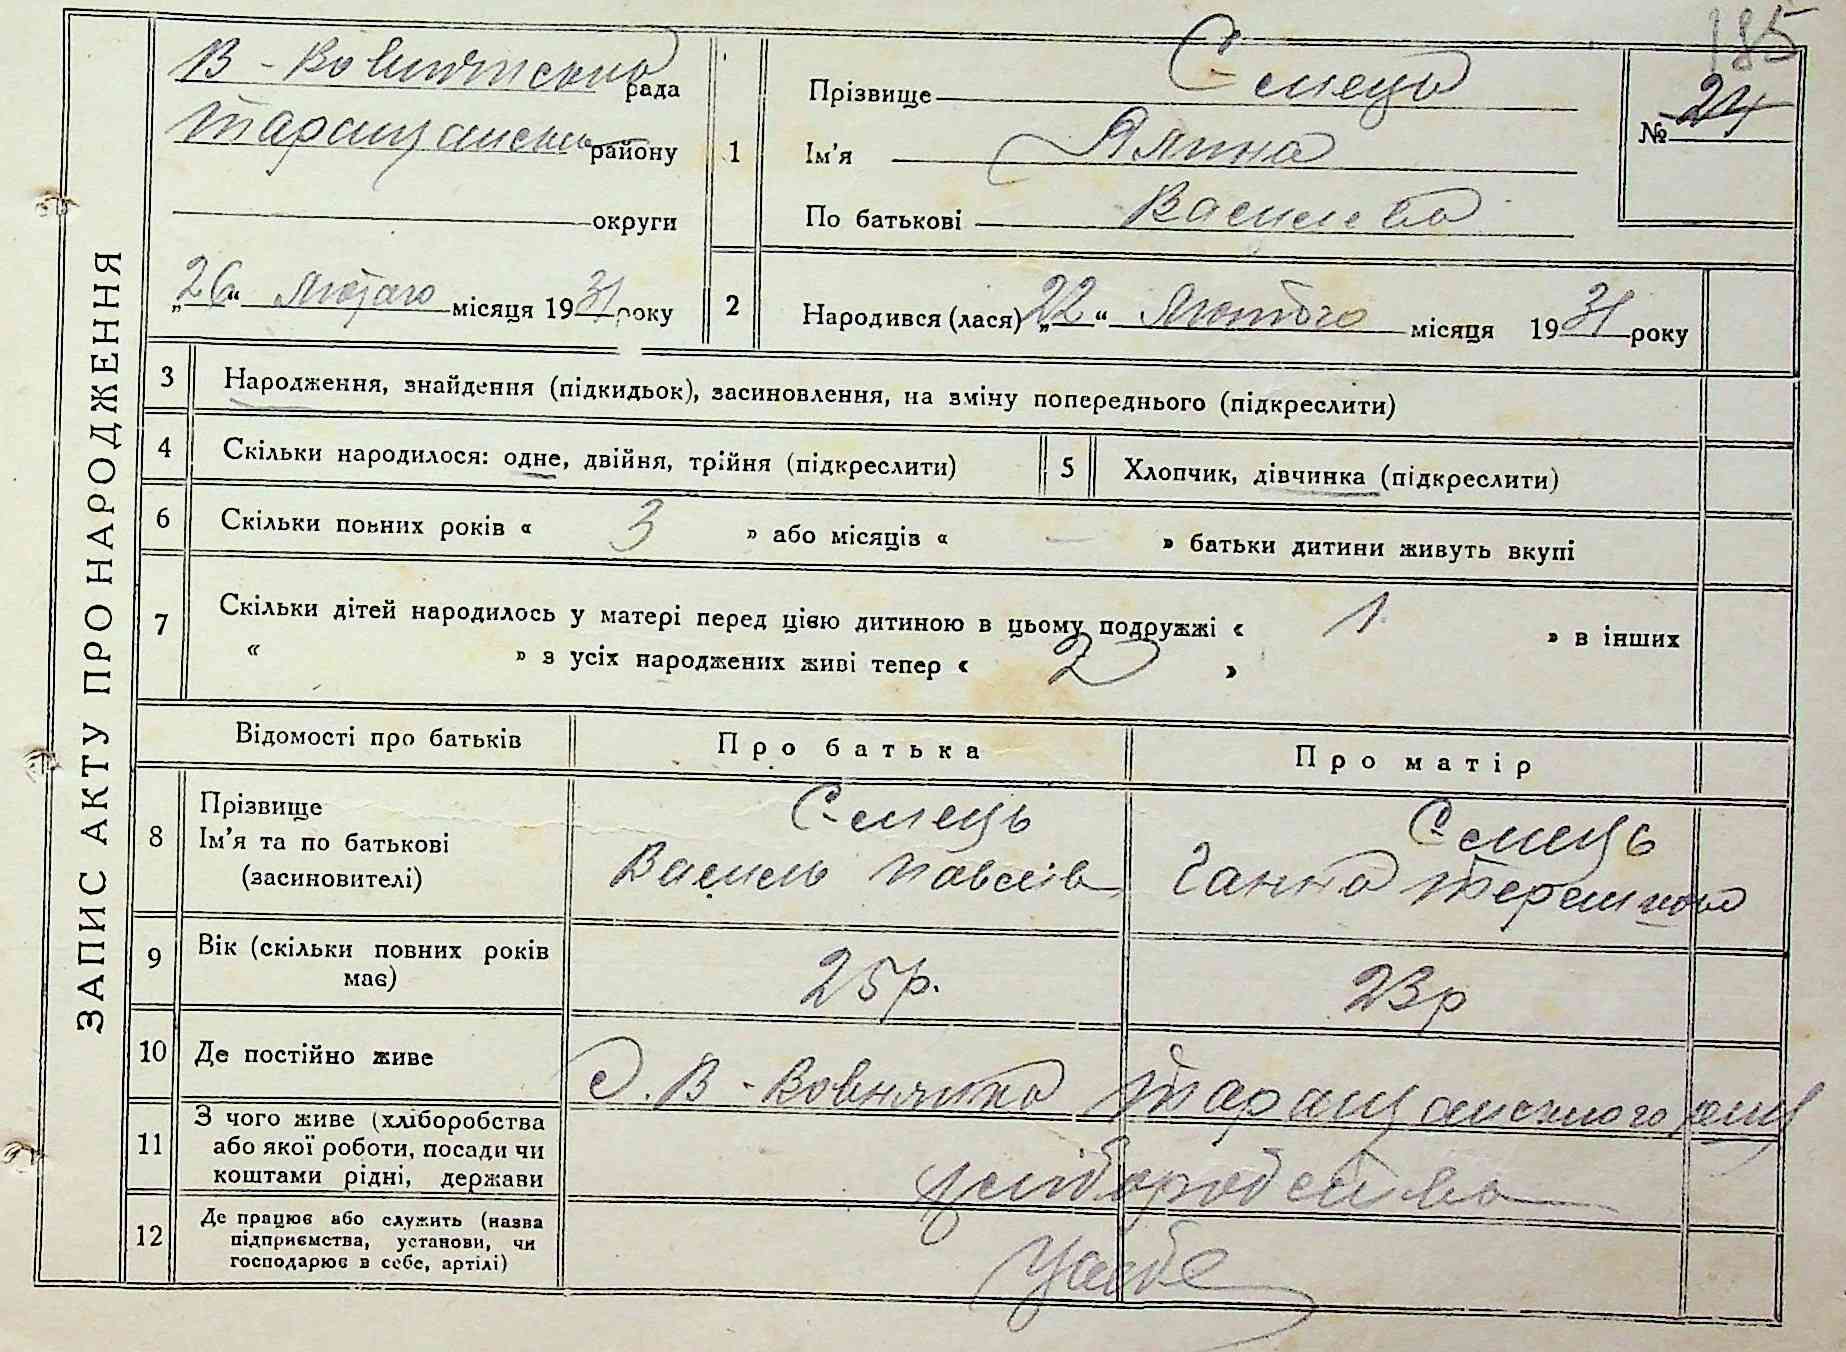 185
В-Вовнянська рада
Таращанськ району
округи
„26“ Лютого місяця 1931 року
1
Прізвище Ємець
Ім'я Ялина
По батькові Василева
№ 24
2
Народився (лася) „22“ Лютого місяця 1931 року
ЗАПИС АКТУ ПРО НАРОДЖЕННЯ
3 Народження, знайдення (підкидьок), засиновлення, на зміну попереднього (підкреслити)
4 Скільки народилося: одне, двійня, трійня (підкреслити)
5 Хлопчик, дівчинка (підкреслити)
6 Скільки повних років « 3 » або місяців « — » батьки дитини живуть вкупі
7 Скільки дітей народилось у матері перед цією дитиною в цьому подружжі « 1 » в інших
« » з усіх народжених живі тепер « 2 »
Відомості про батьків Про батька Про матір
8 Прізвище Ємець Ємець
Ім'я та по батькові Василь Ганна
(засиновителі)
9 Вік (скільки повних років 25р. 23р
має)
10 Де постійно живе с. В-Вовнянка Таращанського рну
11 З чого живе (хліборобства
або якої роботи, посади чи хліборобства
коштами рідні, держави
12 Де працює або служить (назва
підприємства, установи, чи Усебе
господарює в себе, артілі)